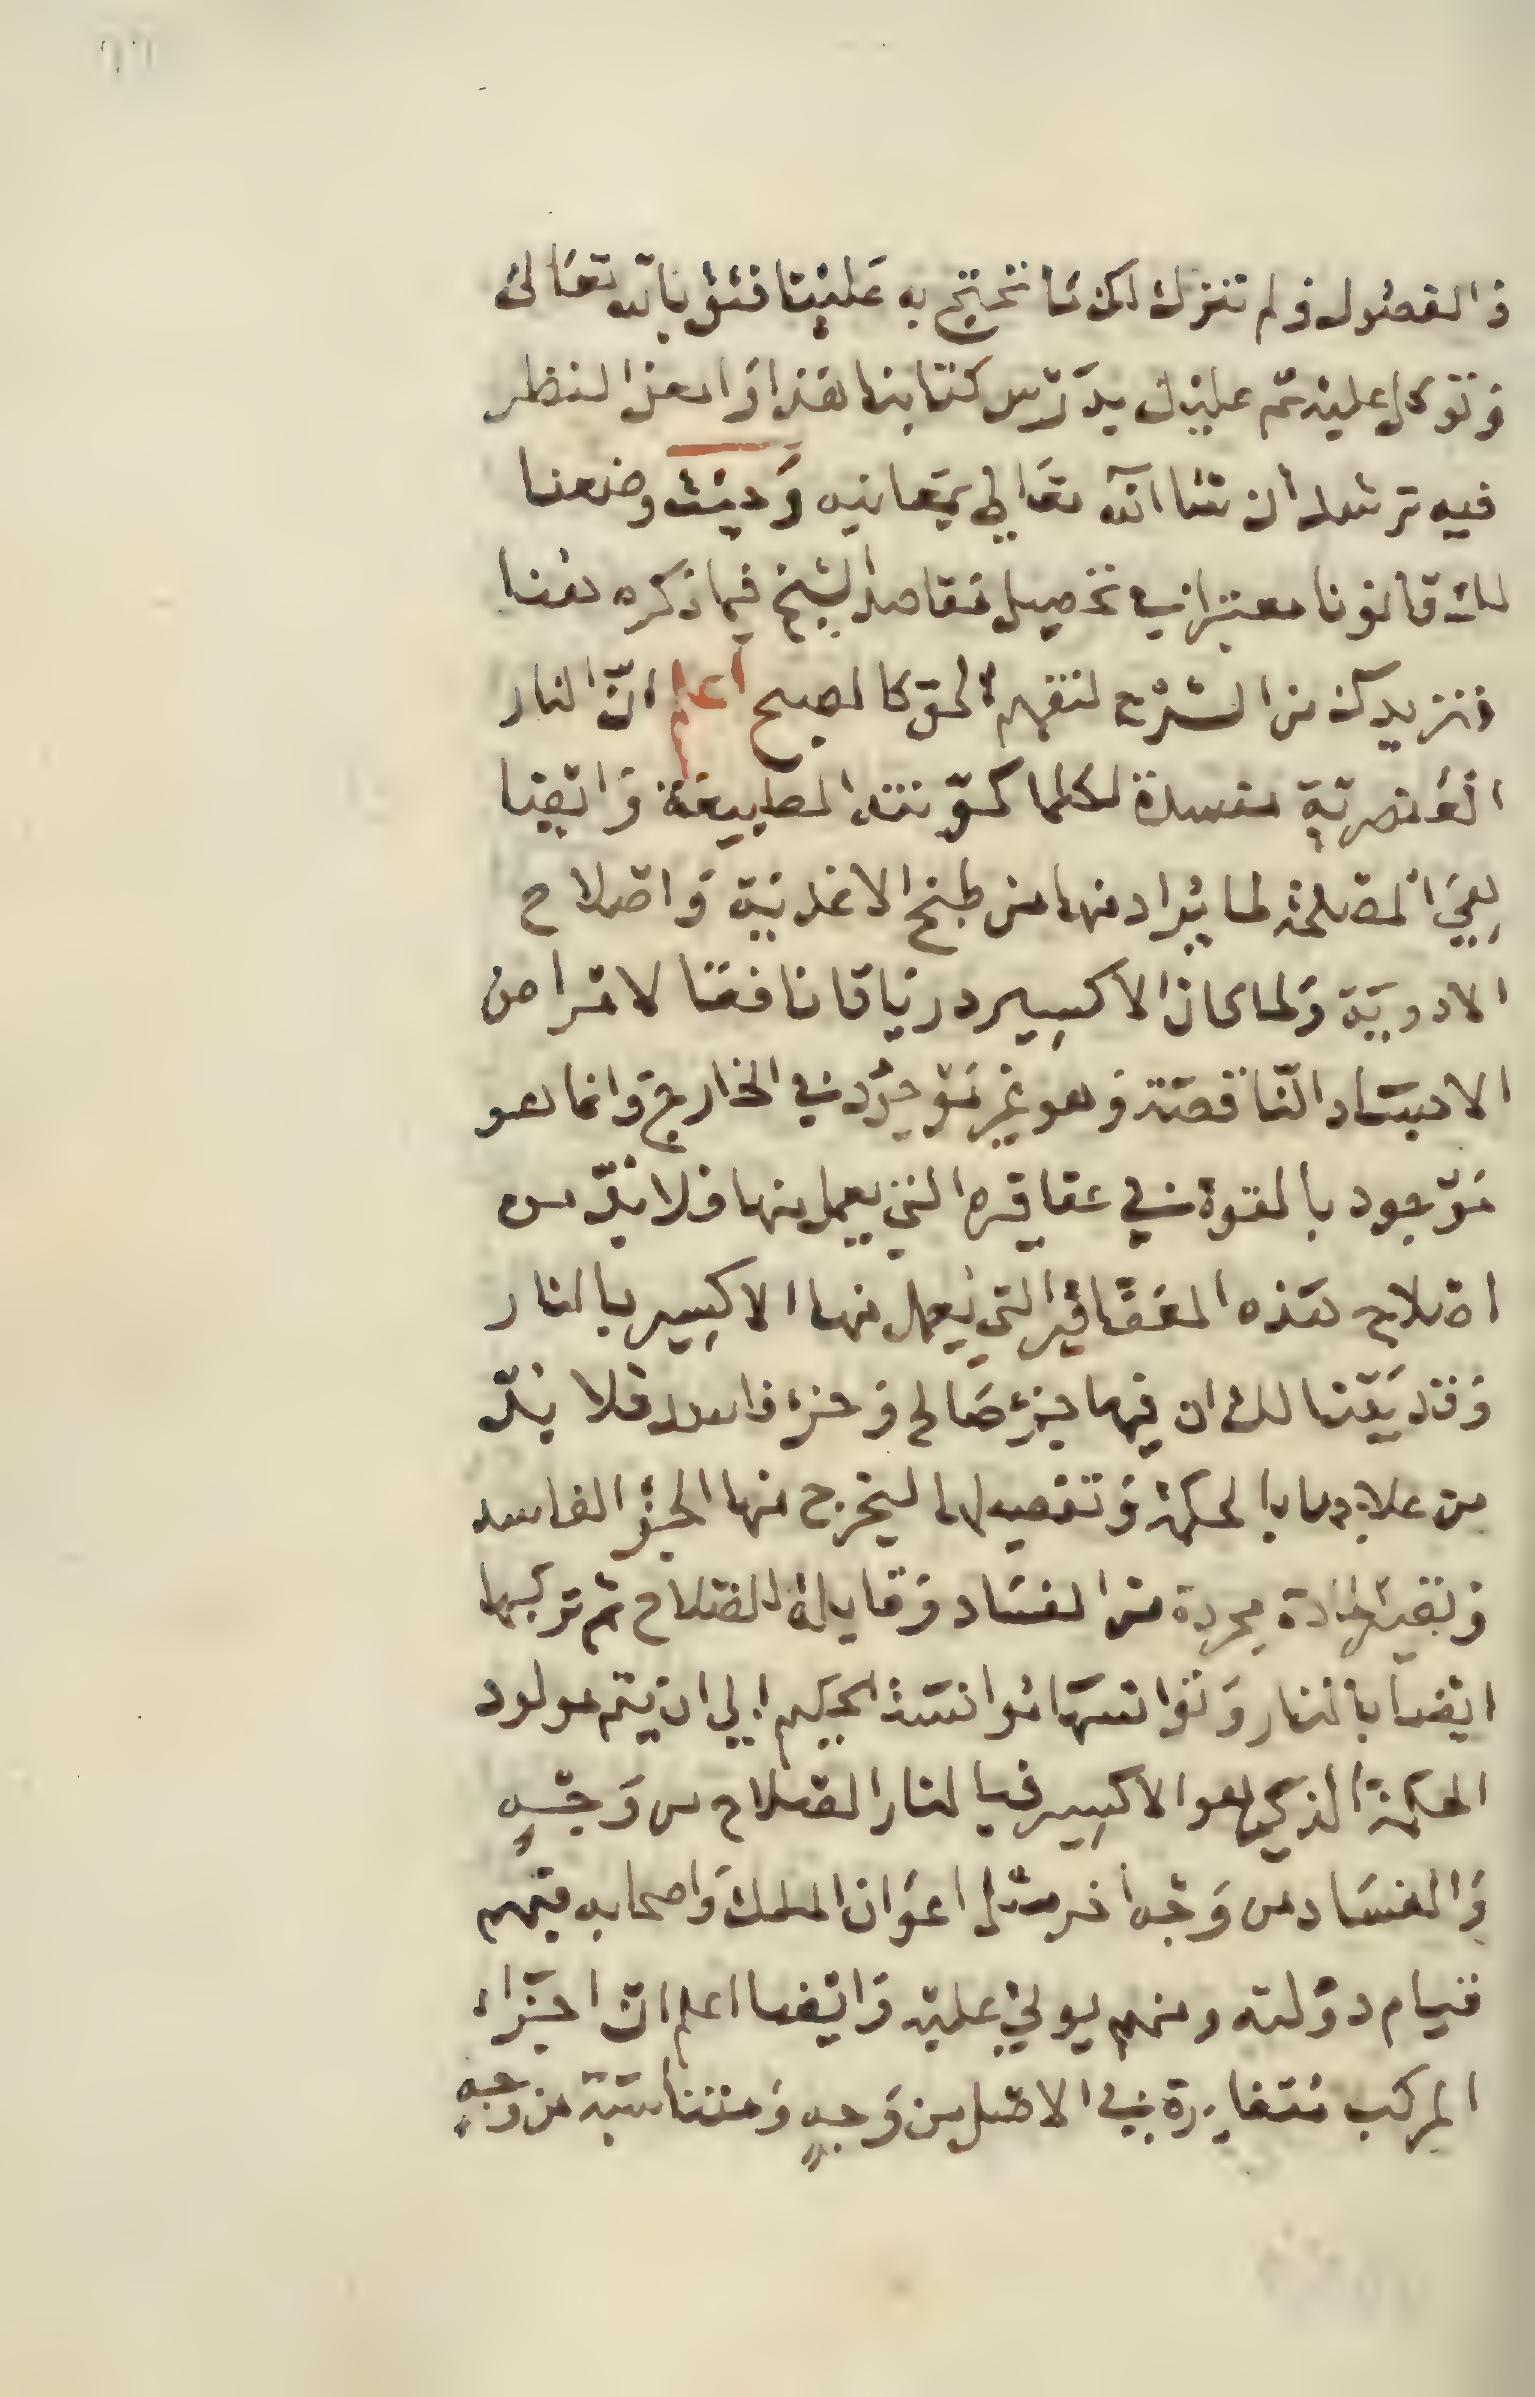 والفصول ولم نترك لك ما تحتج به علينا فثق بالله تعالى
وتوكل عليه ثم عليك بدرس كتابنا هذا وامعن النظر
فيه ترشد ان شا الله تعالي بمعانيه وحيث وضعنا
لك قانونا معتبرا في تحصيل مقاصد الشيخ فيما ذكره هنا
فنزيدك من الشرح لتفهم الحق كالصبح اعلم انّ النار
العنصرية مفسدة لكلما كوّنته الطبيعة وايضا
هي المصلحة لما يراد منها من طبخ الاغذية واصلاح
الادوية ولما كان الاكسير درياقا نافعا لامراض
الاجساد الناقصة وهو غير موجود في الخارج وانما هو
موجود بالقوة في عقاقيره التي يعمل منها فلا بدّ من
اصلاح هذه العقاقير التي يعمل منها الاكسير بالنار
وقد بيّنا لك ان فيها جزء صالح وجزء فاسد فلا بدّ
من علاجها بالحكمة وتفصيلها ليخرج منها الجزء الفاسد
وتبقي المادة مجردة من الفساد وقابلة للصلاح ثم تركبها
ايضا بالنار وتوانسها موانسة الحكيم الي ان يتم مولود
الحكمة الذي هو الاكسير فبالنار الصلاح من وجهٍ
والفساد من وجه اخر مثل اعوان الملك واصحابه فبهم
قيام دولته ومنهم يولي عليه وايضا اعلم انّ اجزاء
المركب متغايرة في الاصل من وجهٍ ومتناسبة من وجهٍ